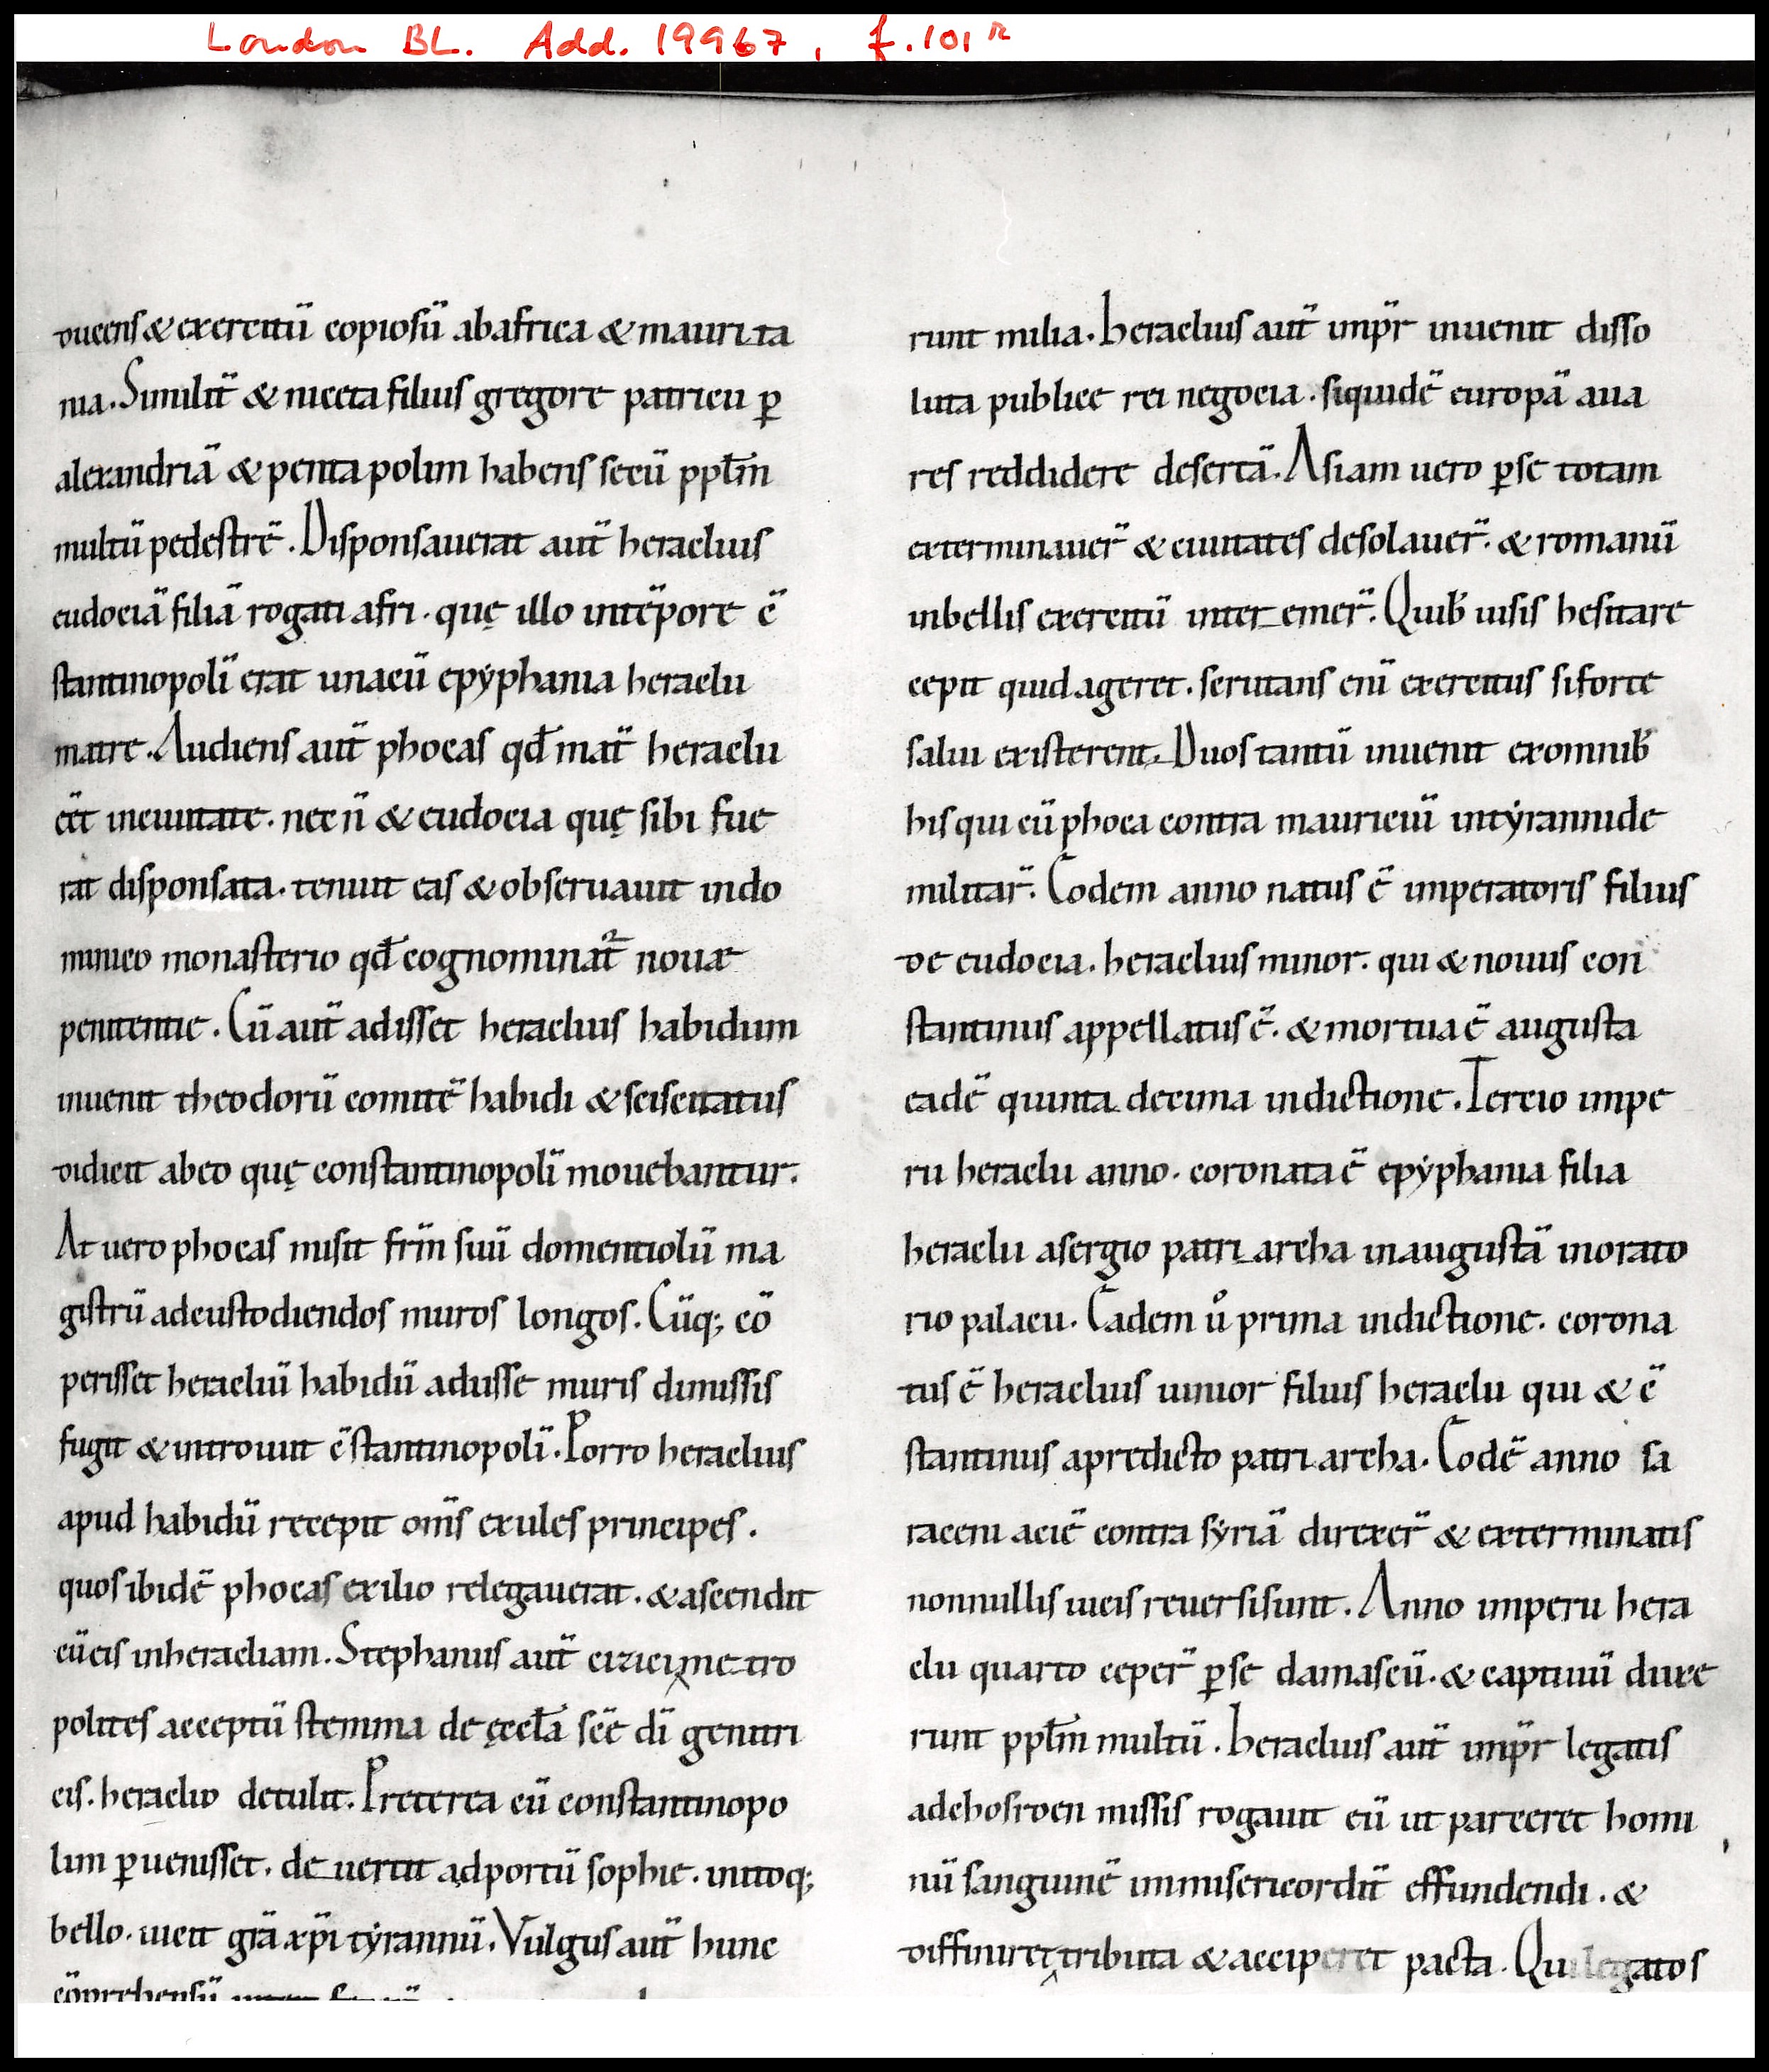 London BL. Add. 19967, f.101ᴿ
ducens & exercitū copiosū abafrica & maurita
nia. Similit̄ & niceta filius gregore patricii ꝑ
alexandriā & pentapolim habens secū ppl̄m
multū pedestrē. Disponsauerat aut̄ heraclius
eudociā filiā rogati afri. quę illo intēpore c̄
stantinopolī erat unacū epẏphania heraclii
matre. Audiens aut̄ phocas qđ mat̄ heraclii
eēt inciuitate. nec n̄ & eudocia quę sibi fue
rat disponsata. tenuit eas & obseruauit indo
minico monasterio qđ cognominat̄ᷣ nouae
penitentie. Cū aut̄ adisset heraclius habidum
inuenit theodorū comitē habidi & sciscitatus
didicit abeo quę constantinopolī mouebantur.
At uero phocas misit fr̄m suū domentiolū ma
gistrū adcustodiendos muros longos. Cūq; cō
perisset heracliū habidū adusse muris dimissis
fugit & introiuit c̄stantinopolī. Porro heraclius
apud habidū recepit om̄s exules principes.
quos ibidē phocas exilio relegauerat. & ascendit
cūeis inheracliam. Stephanus aut̄ cizicimetro
polites acceptū stemma de ęccl̄a scē dī genitri
cis. heraclio detulit. Preterea cū constantinopo
lim ꝑuenisset. deuertit adportū sophie. initoq;
bello. uicit grā xp̄i tẏrannū. Vulgus aut̄ hunc
cōprehensū
runt milia. heraclius aut̄ imp̄r inuenit disso
luta publice rei negocia. siquidē europā aua
res reddidere desertā. Asiam uero ꝑse totam
exterminauer̄ & ciuitates desolauer̄. & romanū
inbellis exercitū interemer̄. Quib; uisis hesitare
cepit quid ageret. scrutans enī exercitus siforte
salui existerent. Duos tantū inuenit exomnib;
his qui cū phoca contra mauriciū intẏrannide
militar̄. Eodem anno natus ē imperatoris filius
de eudocia. heraclius minor. qui & nouus con
stantinus appellatus ē. & mortua ē augusta
eadē quinta decima indictione. Tercio impe
rii heraclii anno. coronata ē epẏphania filia
heraclii asergio patriarcha inaugustā inorato
rio palacii. Eadem ů prima indictione. corona
tus ē heraclius iunior filius heraclii qui & c̄
stantinus apredicto patriarcha. Eodē anno sa
raceni aciē contra sẏriā direxer̄ & exterminatis
nonnullis uicis reuersisunt. Anno imperii hera
clii quarto ceper̄ ꝑse damascū. & captiuū duxe
runt ppl̄m multū. heraclius aut̄ imp̄r legatis
adchosroen missis rogauit eū ut parceret homi
nū sanguinē inmisericordit̄ effundendi. &
diffiniret tributa & acciperet pacta. Qui legatos